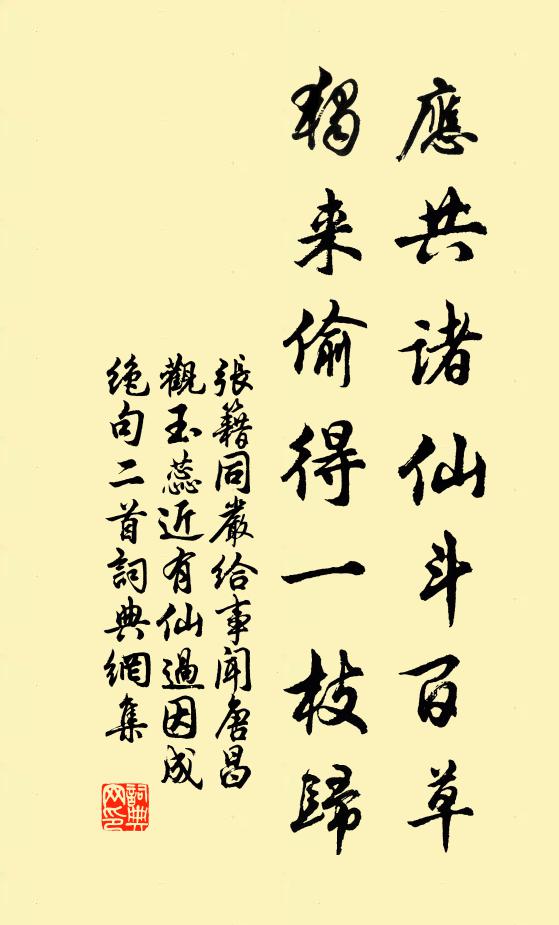 應共諸仙斗百草
獨来偷得一枝歸
張籍同嚴給事聞唐昌
觀玉蕊近有仙過因成
絶句二首詞典網集
詞典
网印